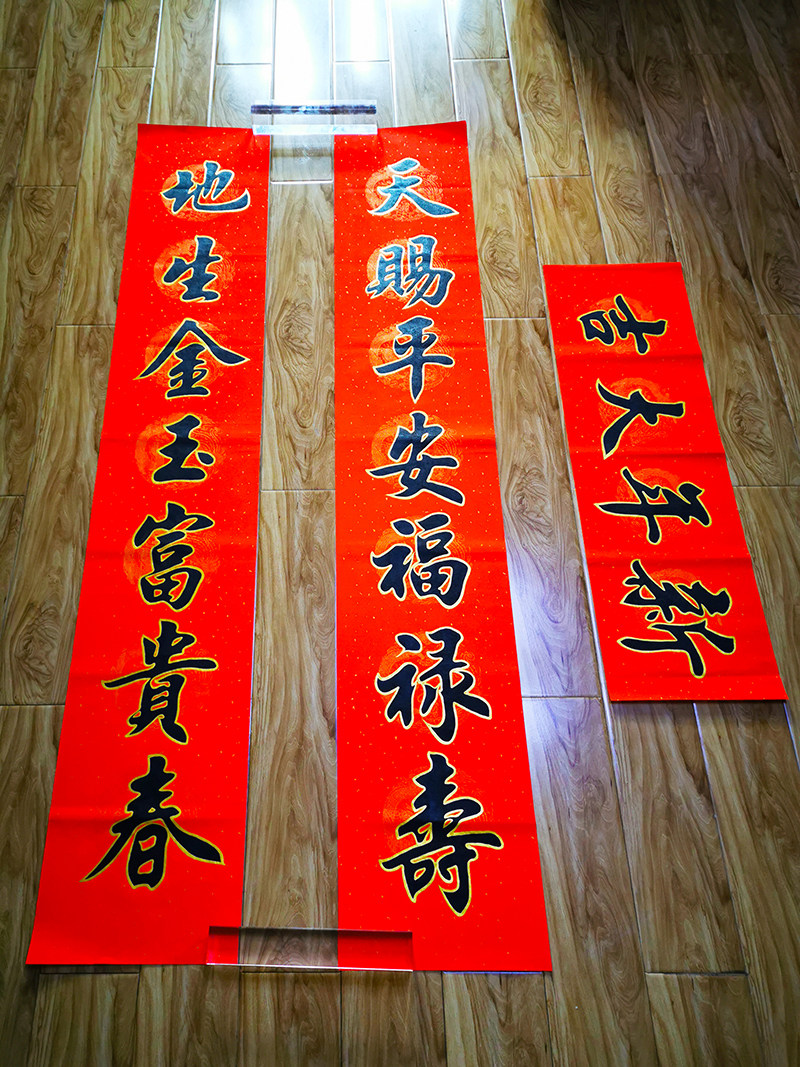 天賜平安福禄壽
地生金玉富貴春
新年大吉